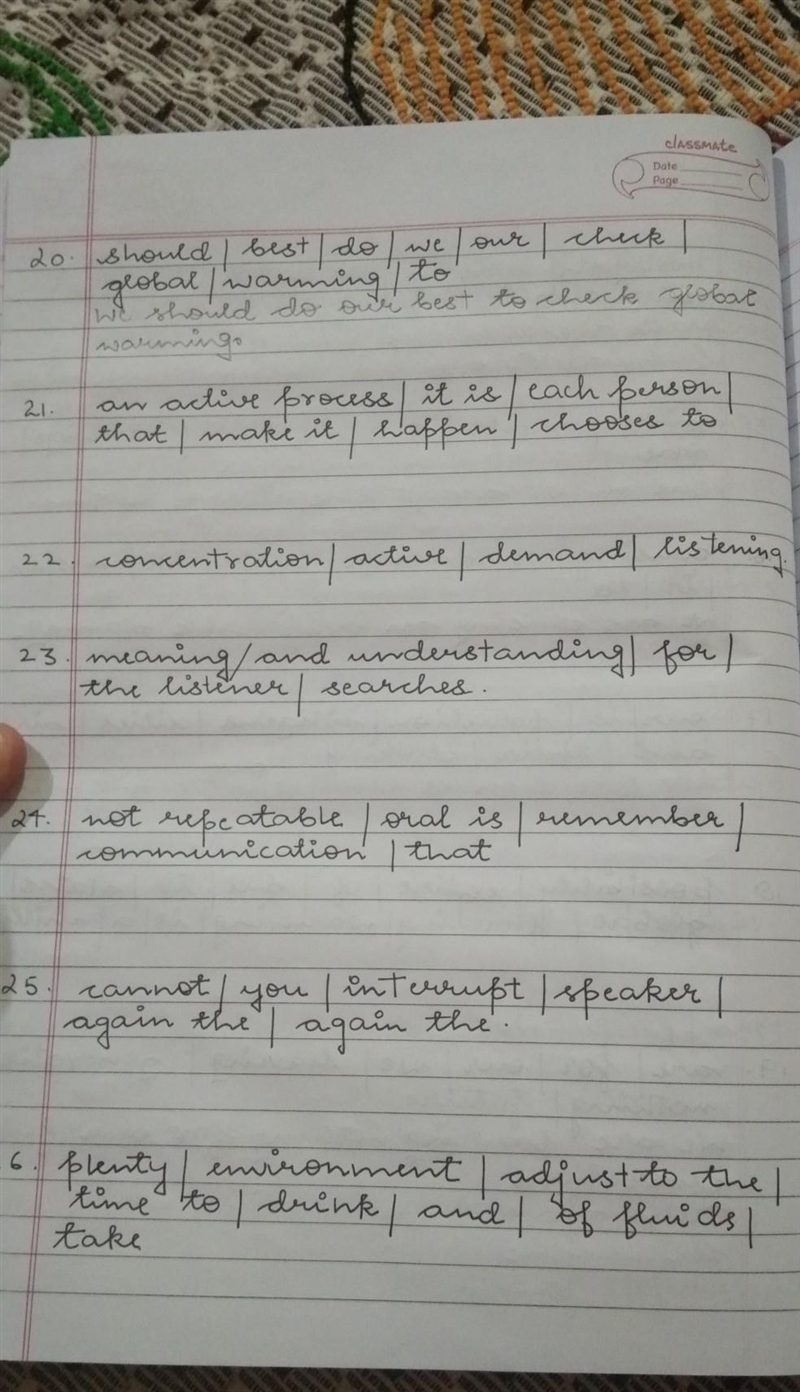 classmate
Date
Page
20. should | best | do | we | our | check |
global | warming | to
We should do our best to check global
warming.
21. an active process | it is | each person |
that | make it | happen | chooses to
22. concentration | active | demand | listening.
23. meaning / and understanding | for |
the listener | searches.
24. not repeatable | oral is | remember |
communication | that
25. cannot | you | interrupt | speaker |
again the | again the.
6. plenty | environment | adjust to the |
time to | drink | and | of fluids |
take